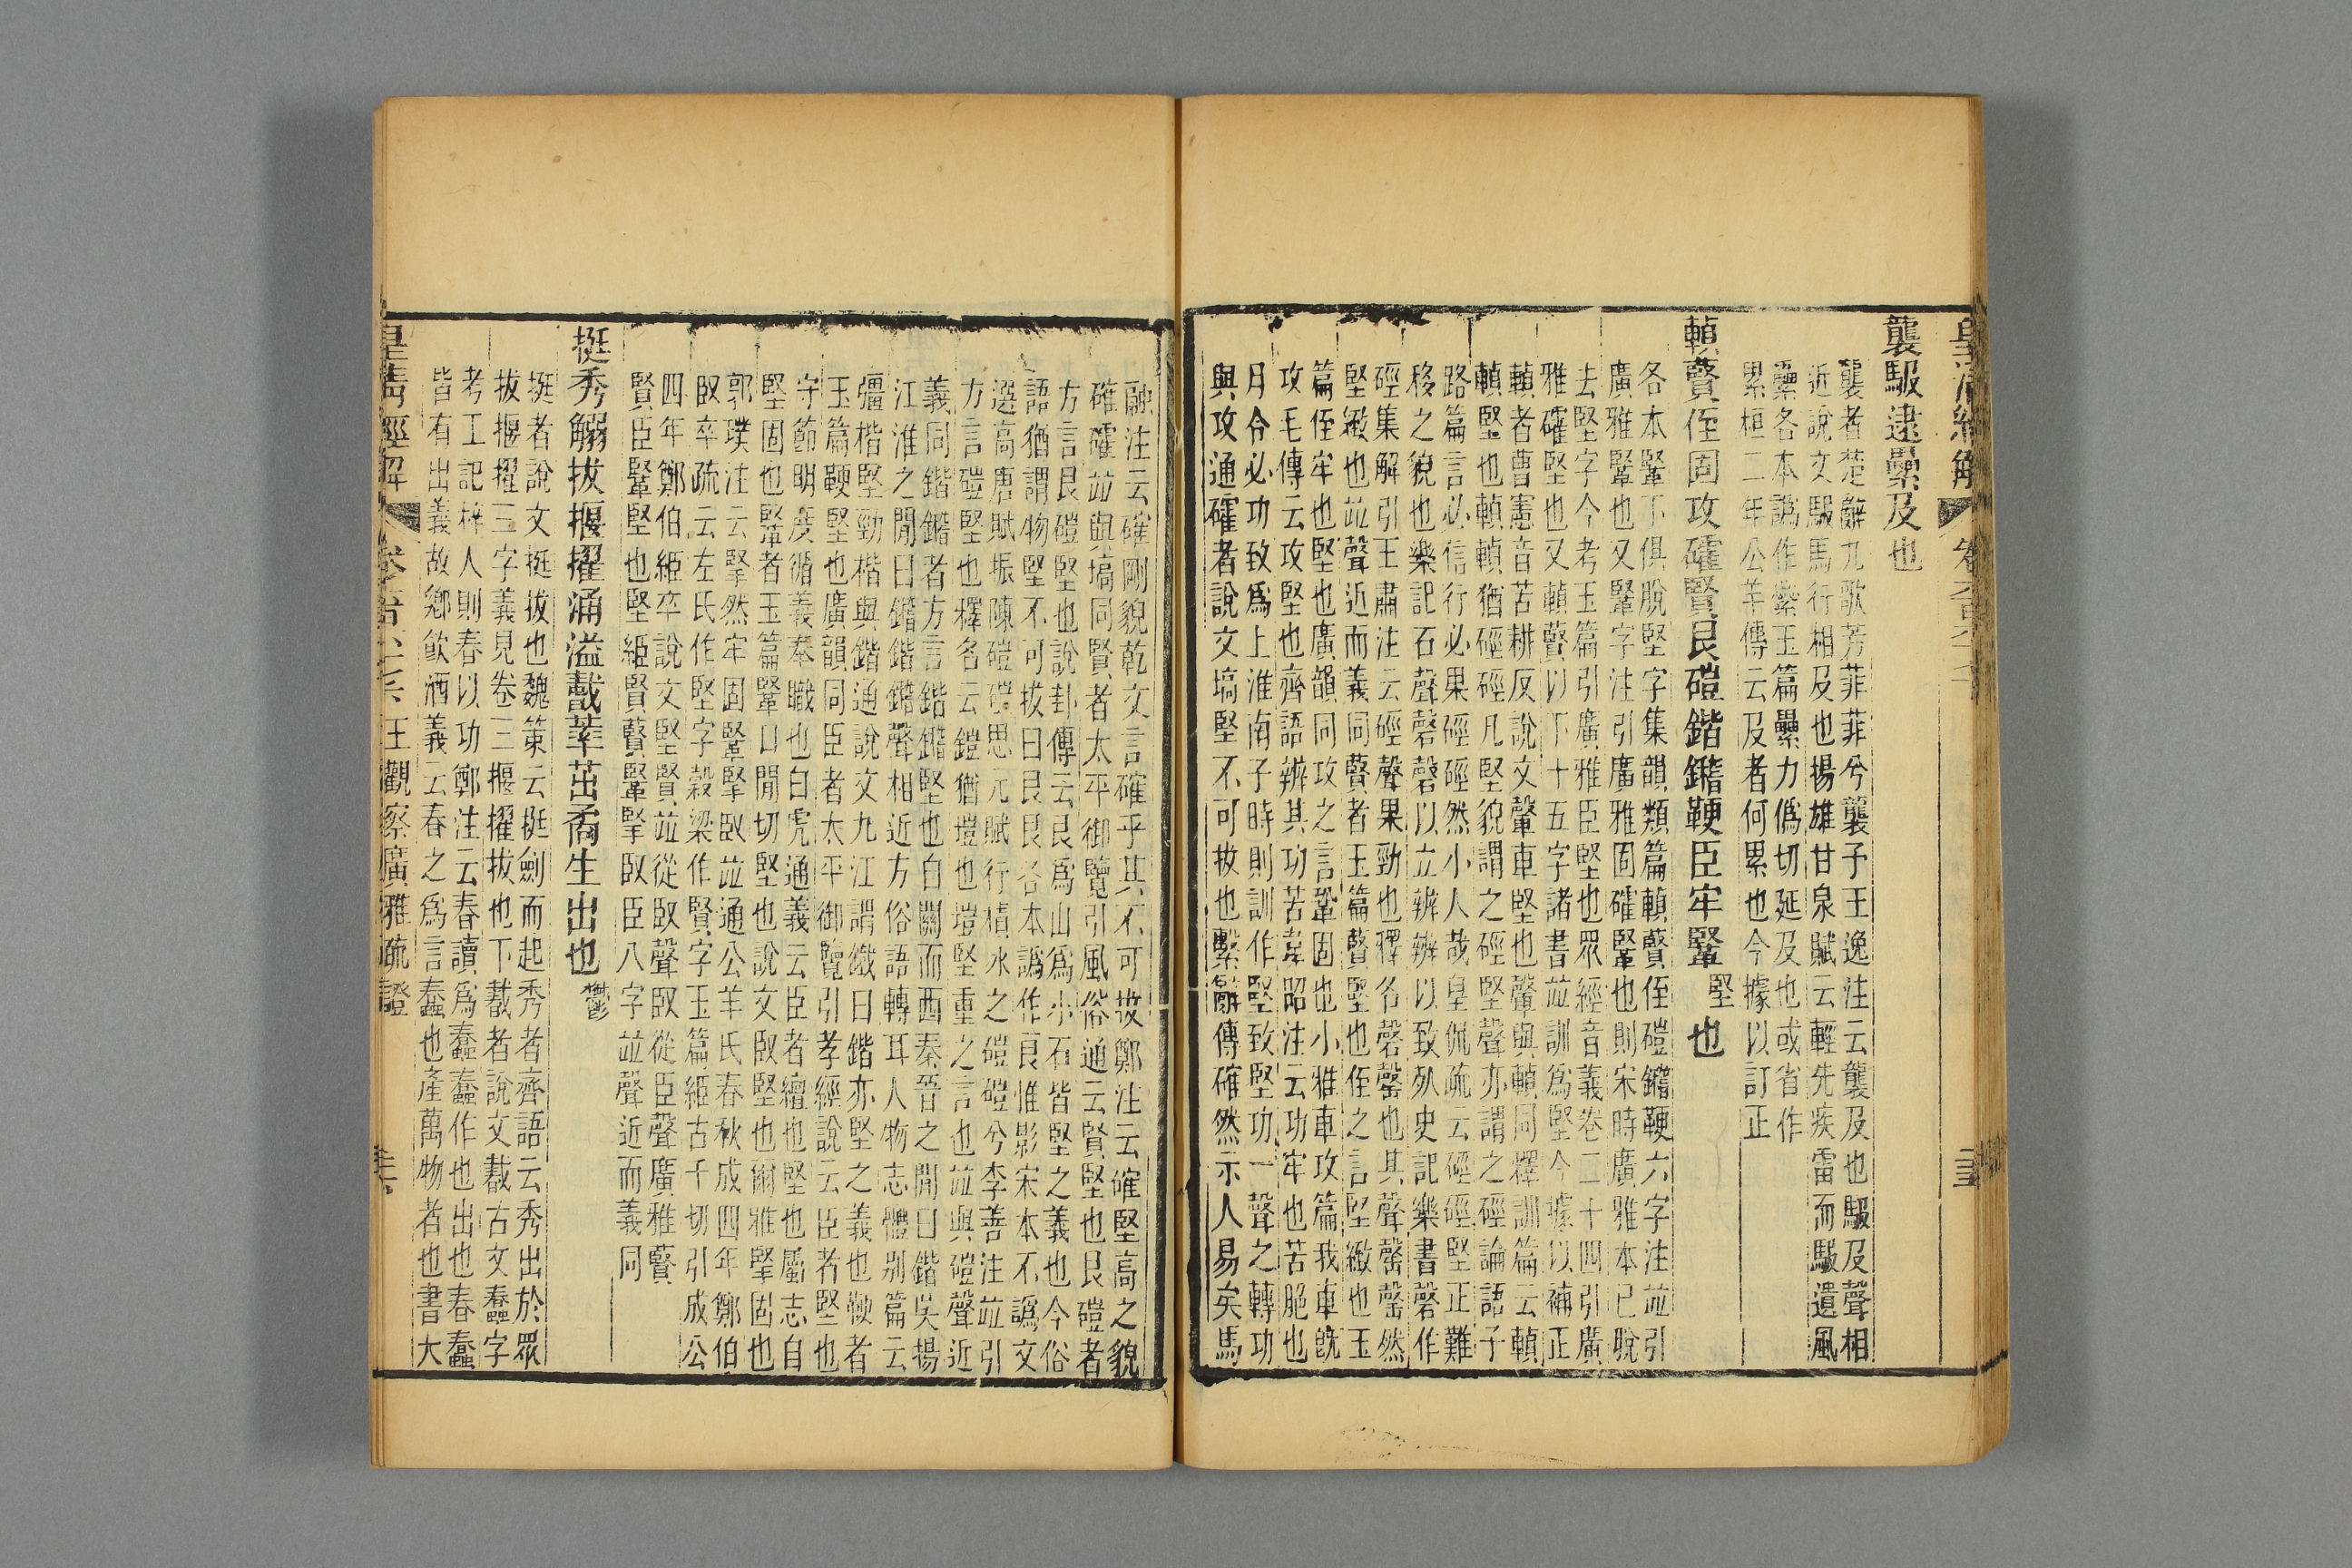 皇清經解
襲馺逮纍及也
襲者楚辭九歌芳菲菲兮襲予王逸注云襲及也馺及聲相
近說文馺馬行相及也揚雄甘泉賦云輕先疾雷而馺遺風
纍各本譌作絫玉篇纍力僞切延及也或省作
累桓二年公羊傳云及者何累也今據以訂正
䡩藖侄固攻礭賢艮磑鍇鐕鞕臣牢鞏堅也
各本鞏下俱脫堅字集韻類篇䡩藖侄磑鐕鞕六字注竝引
廣雅鞏也又鞏字注引廣雅固礭鞏也則宋時廣雅本已脫
去堅字今考玉篇引廣雅臣堅也眾經音義卷二十四引廣
雅確堅也又䡩藖以下十五字諸書竝訓為堅今據以補正
䡩者曹憲音苦耕反說文䡩車堅也䡩與䡩同釋訓篇云䡩
䡩堅也䡩䡩猶硜硜凡堅貌謂之硜堅聲亦謂之硜論語子
路篇言必信行必果硜硜然小人哉皇侃疏云硜硜堅正難
移之貌也樂記石聲磬磬以立辨辨以致死史記樂書磬作
硜集解引王肅注云硜聲果勁也釋名磬罄也其聲罄罄然
堅緻也竝聲近而義同藖者玉篇藖堅也侄之言堅緻也玉
篇侄牢也堅也廣韻同攻之言鞏固也小雅車攻篇我車既
攻毛傳云攻堅也齊語辨其功苦韋昭注云功牢也苦脆也
月令必功致為上淮南子時則訓作堅致堅功一聲之轉功
與攻通礭者說文塙堅不可拔也繫辭傳確然示人易矣馬
融注云確剛貌乾文言確乎其不可拔鄭注云確堅高之貌
確礭竝與塙同賢者太平御覽引風俗通云賢堅也艮磑者
方言艮磑堅也說卦傳云艮為山為小石皆堅之義也今俗
語猶謂物堅不可拔曰艮艮各本譌作良惟影宋本不譌文
選高唐賦振陳磑磑思元賦行積冰之磑磑兮李善注竝引
方言磑堅也釋名云鎧猶塏也塏堅重之言也竝與磑聲近
義同鍇鐕者方言鍇鐕堅也自關而西秦晉之閒曰鍇吳揚
江淮之閒曰鐕鍇鐕聲相近方俗語轉耳人物志體別篇云
彊楷堅勁楷與鍇通說文九江謂鐵曰鍇亦堅之義也鞕者
玉篇鞕堅也廣韻同臣者太平御覽引孝經說云臣者堅也
守節明度循義奉職也白虎通義云臣者繵也堅也屬志自
堅固也鞏者玉篇鞏口閒切堅也說文臤堅也爾雅掔固也
郭璞注云掔然牢固鞏掔臤竝通公羊氏春秋成四年鄭伯
臤卒疏云左氏作堅字穀梁作賢字玉篇䋚古千切引成公
四年鄭伯䋚卒說文堅賢竝從臤聲臤從臣聲廣雅賢
賢臣鞏堅也堅䋚賢藖鞏掔臤臣八字竝聲近而義同
挺秀鰯拔揠擢涌溢戴莑茁矞生出也鬱
挺者說文挺拔也魏策云挺劍而起秀者齊語云秀出於眾
拔揠擢三字義見卷三揠擢拔也下戴者說文戴古文蠢字
考工記梓人則春以功鄭注云春讀為蠢蠢作也出也春蠢
皆有出義故鄉飲酒義云春之為言蠢也產萬物者也書大
皇清經解
王觀察廣雅疏證